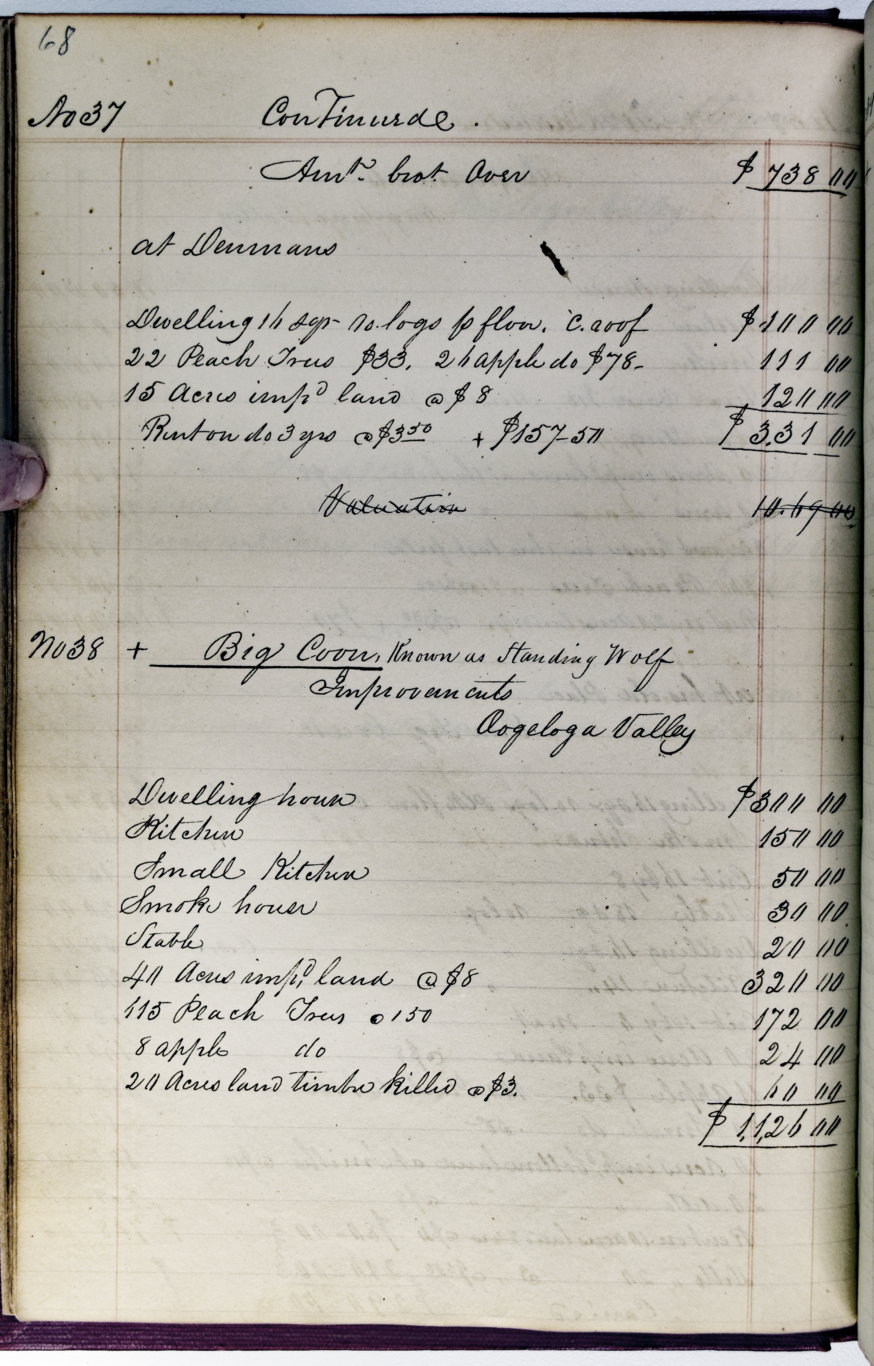 68
No 37 Continued.
Amt. brot Over $738 00
at Denmans
Dwelling 16 sqr ro. logs p floor. C. roof $100 00
22 Peach Trees $33. 26 apple do $78- 111 00
15 Acres impd land @ $8 120 00
Rent on do 3 yrs @ $3 50 + $157-50 $331 00
Valuation 10.69 00
No 38 + Big Coon, Known as Standing Wolf
Improvements
Oogeloga Valley
Dwelling house $300 00
Kitchen 150 00
Small Kitchen 50 00
Smoke house 30 00
Stable 20 00
40 Acres impd land @ $8 320 00
115 Peach Trees @ 150 172 00
8 apple do 24 00
20 Acres land timber killed @ $3. 60 00
$1,126 00